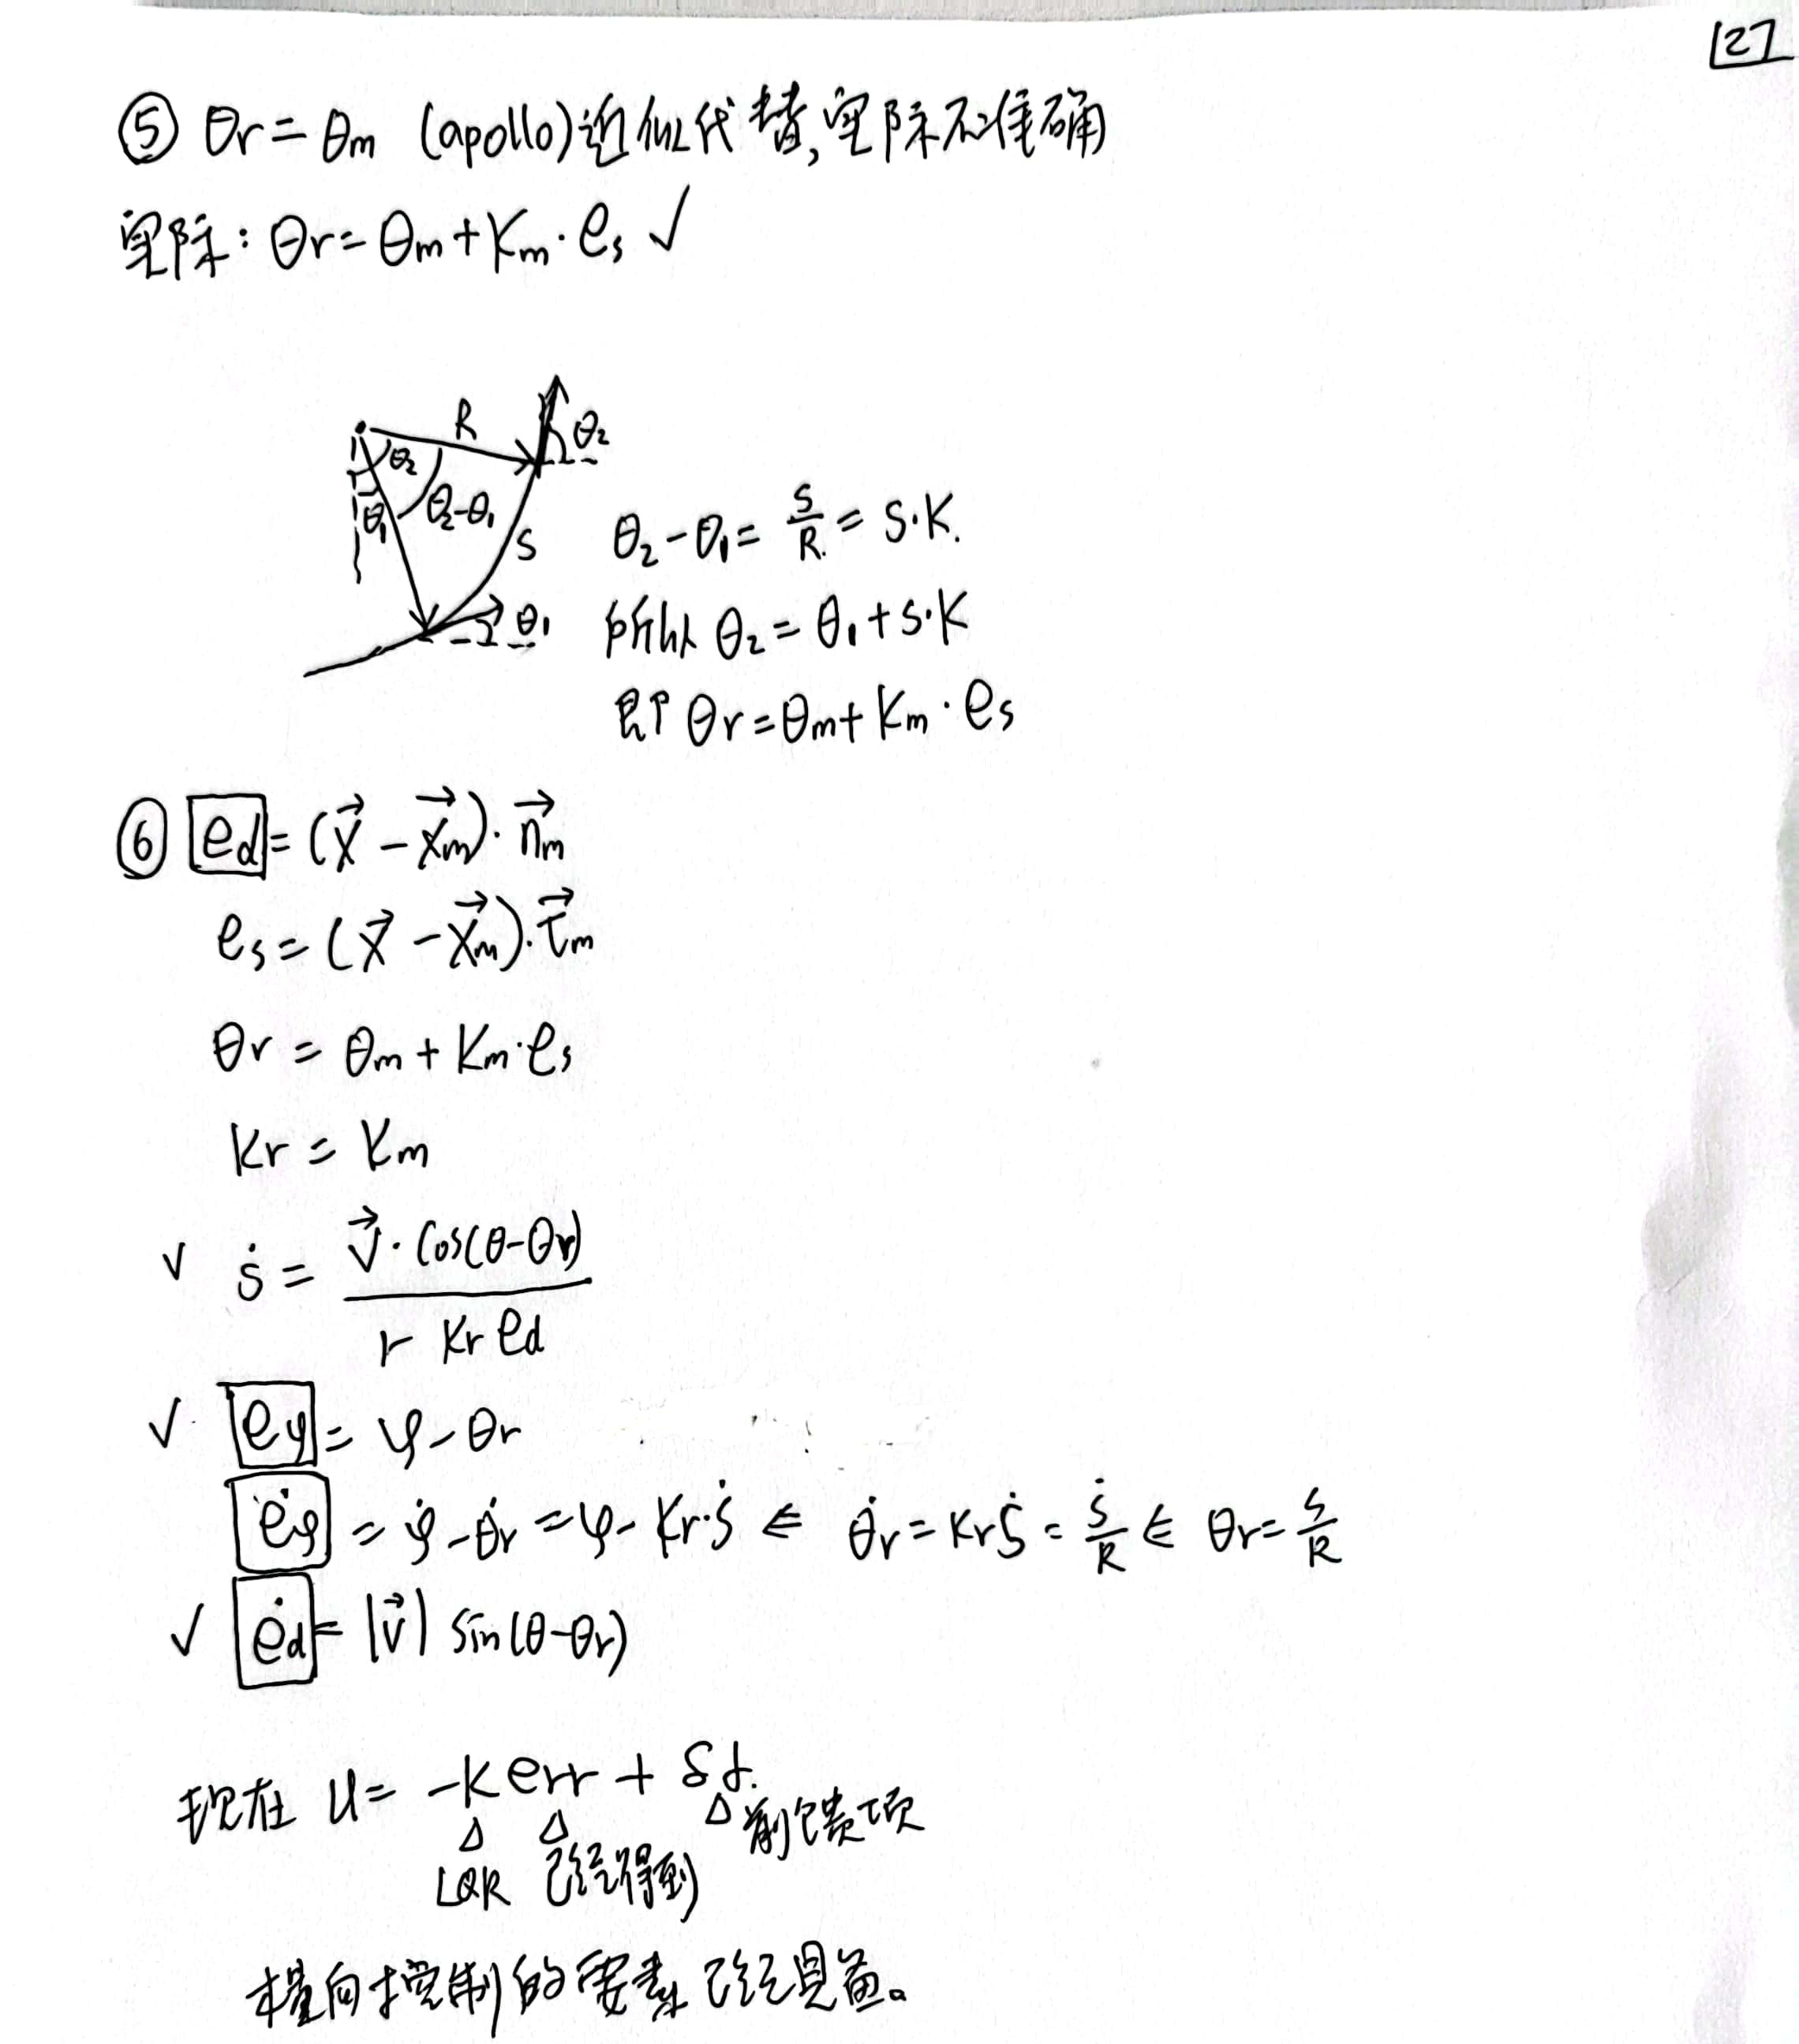 [27
⑤ θr = θm (apollo)近似代替,实际不准确
实际: θr = θm + Km · es √
R
θ2
θ2
θ1
θ2-θ1
S
θ1
θ2 - θ1 = S/R. = S·K.
所以 θ2 = θ1 + S·K
即 θr = θm + Km · es
⑥ ed = (x⃗ - x⃗m) · n⃗m
es = (x⃗ - x⃗m) · τ⃗m
θr = θm + Km · es
Kr = Km
√ ṡ = v⃗ · cos(θ-θr) / r Kr ed
√ eφ = φ - θr
ėφ = φ̇ - θ̇r = φ - Kr · ṡ ⇐ θ̇r = Kr ṡ = ṡ/R ⇐ θr = s/R
√ ėd = |v⃗| sin(θ-θr)
现在 u = -K err + δf.
Δ Δ Δ 前馈项
LQR 已经得到
横向控制的要素已经具备。